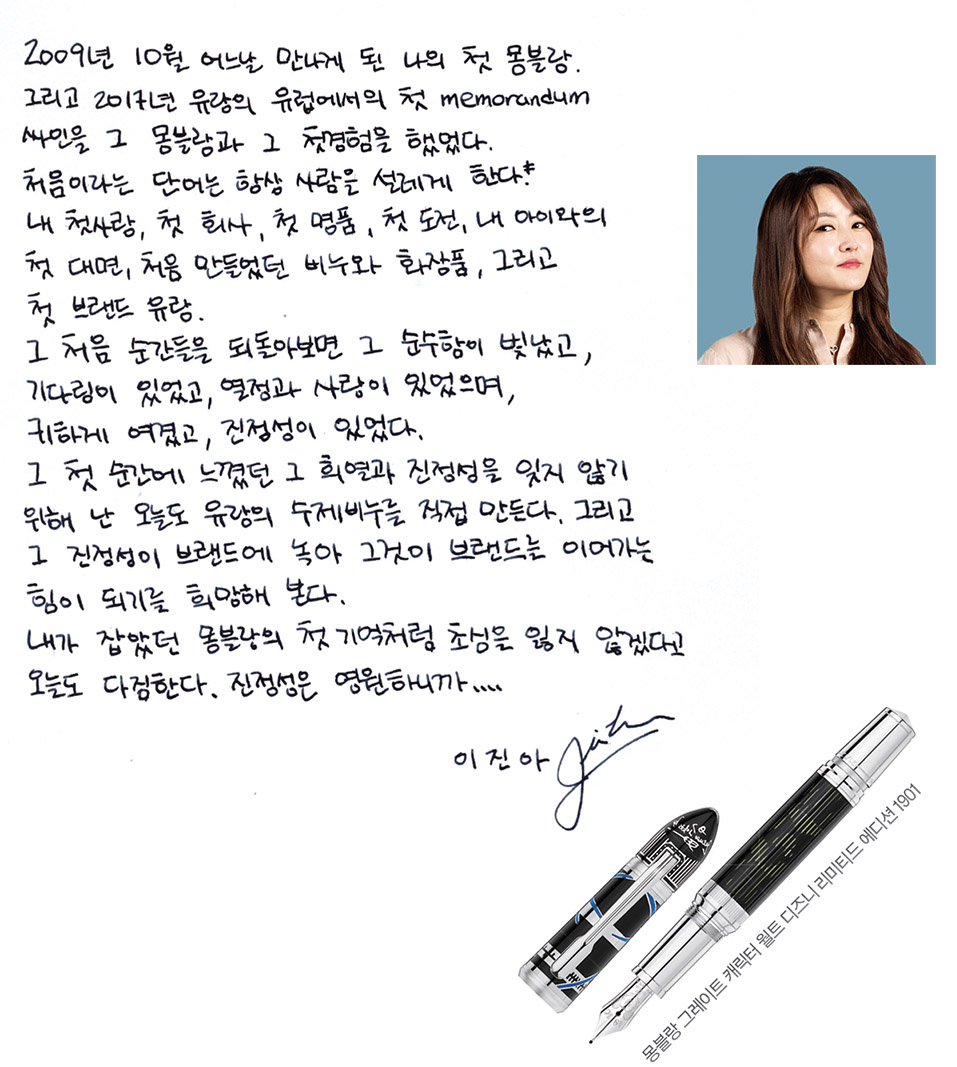 2009년 10월 어느날 만나게 된 나의 첫 몽블랑.
그리고 2017년 유랑의 유럽에서의 첫 memorandum
싸인을 그 몽블랑과 그 첫경험을 했었다.
처음이라는 단어는 항상 사람을 설레게 한다.
내 첫사랑, 첫 회사, 첫 명품, 첫 도전, 내 아이와의
첫 대면, 처음 만들었던 비누와 화장품, 그리고
첫 브랜드 유랑.
그 처음 순간들을 되돌아보면 그 순수함이 빛났고,
기다림이 있었고, 열정과 사랑이 있었으며,
귀하게 여겼고, 진정성이 있었다.
그 첫 순간에 느꼈던 그 희열과 진정성을 잊지 않기
위해 난 오늘도 유랑의 수제비누를 직접 만든다. 그리고
그 진정성이 브랜드에 녹아 그것이 브랜드를 이어가는
힘이 되기를 희망해 본다.
내가 잡았던 몽블랑의 첫 기억처럼 초심을 잃지 않겠다고
오늘도 다짐한다. 진정성은 영원하니까....
이진아
몽블랑 그레이트 캐릭터 월트 디즈니 리미티드 에디션 1901